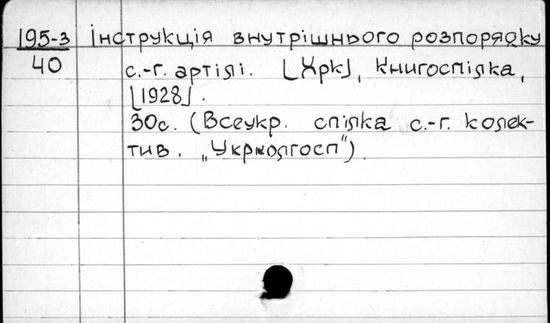 195-3 Інструкція внутрішнього розпорядку
40 с.-г. артілі. [Хрк], Книгоспілка,
[1928].
30с. (Всеукр. спілка с.-г. колек-
тив. „Укрколгосп").